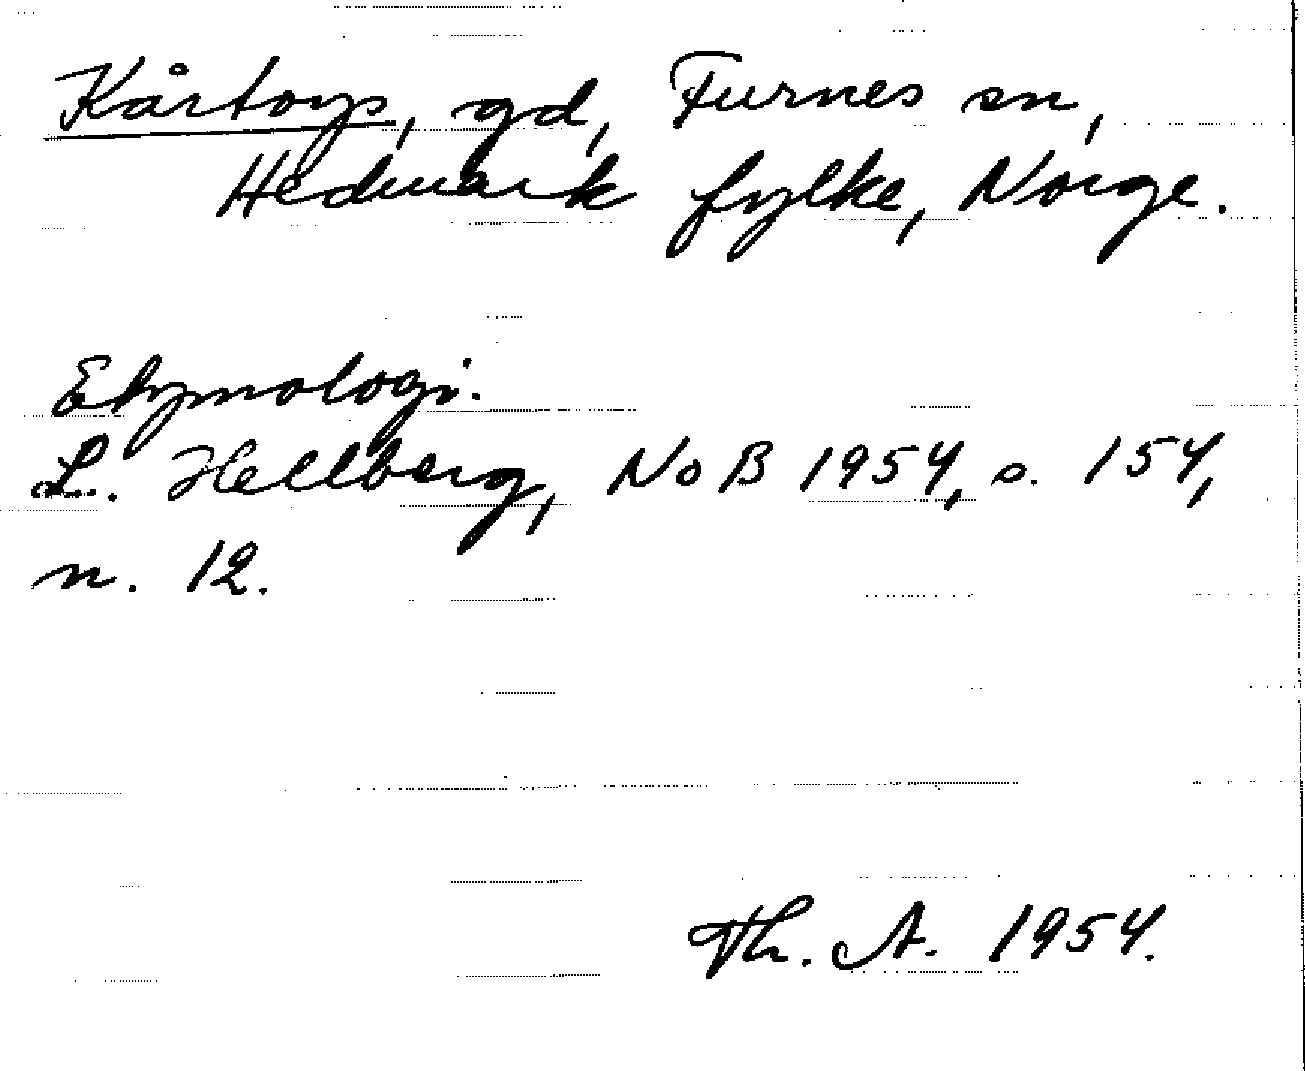 Kårtorp, gd, Furnes sn,
Hedmark fylke, Norge.
Etymologi.
L. Hellberg, NoB 1954, s. 154,
n. 12.
Th. A. 1954.